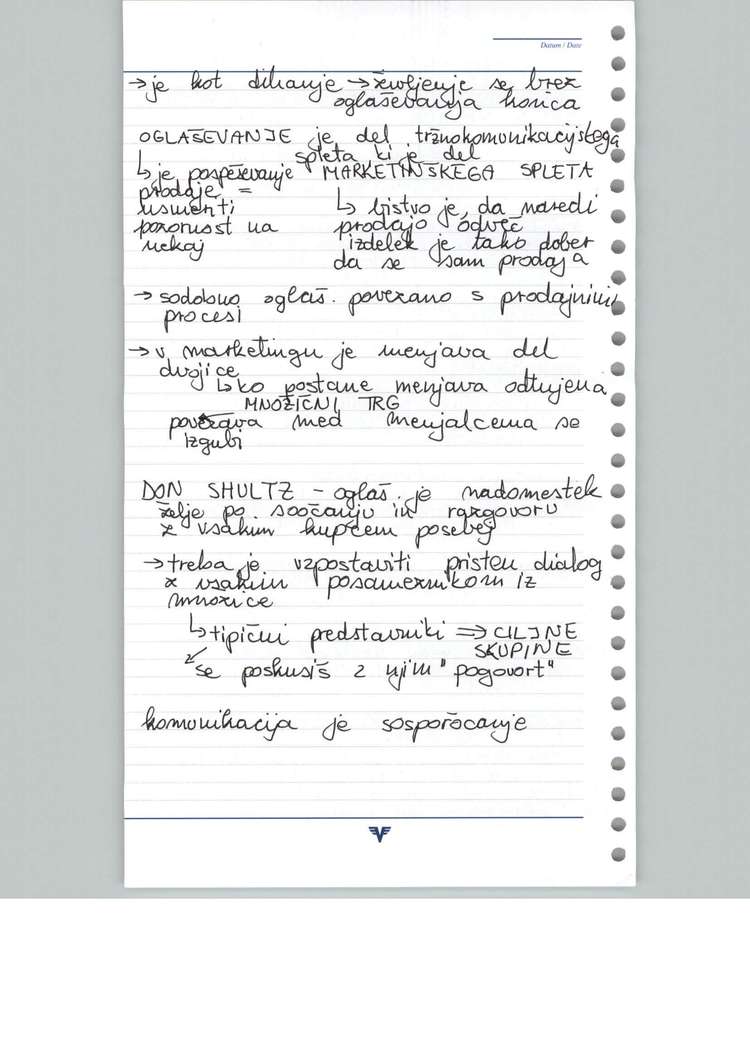 Datum / Date
→ je kot dihanje → življenje se brez
oglaševanja konča
OGLAŠEVANJE je del tržnokomunikacijskega
spleta ki je del
↳ je pospeševanje MARKETINŠKEGA SPLETA
prodaje =
usmeriti ↳ bistvo je, da naredi
pozornost na prodajo odveč
nekaj izdelek je tako dober
da se sam prodaja
→ sodobno oglaš. povezano s prodajnimi
procesi
→ v marketingu je menjava del
dvojice
↳ ko postane menjava odtujena
MNOŽIČNI TRG
povezava med menjalcema se
izgubi
DON SHULTZ - oglaš. je nadomestek
želje po soočanju in razgovoru
z vsakim kupcem posebej
→ treba je vzpostaviti pristen dialog
z vsakim posameznikom iz
množice
↳ tipični predstavniki ⇒ CILJNE
SKUPINE
se poskusiš z njim "pogovort"
komunikacija je sosporočanje